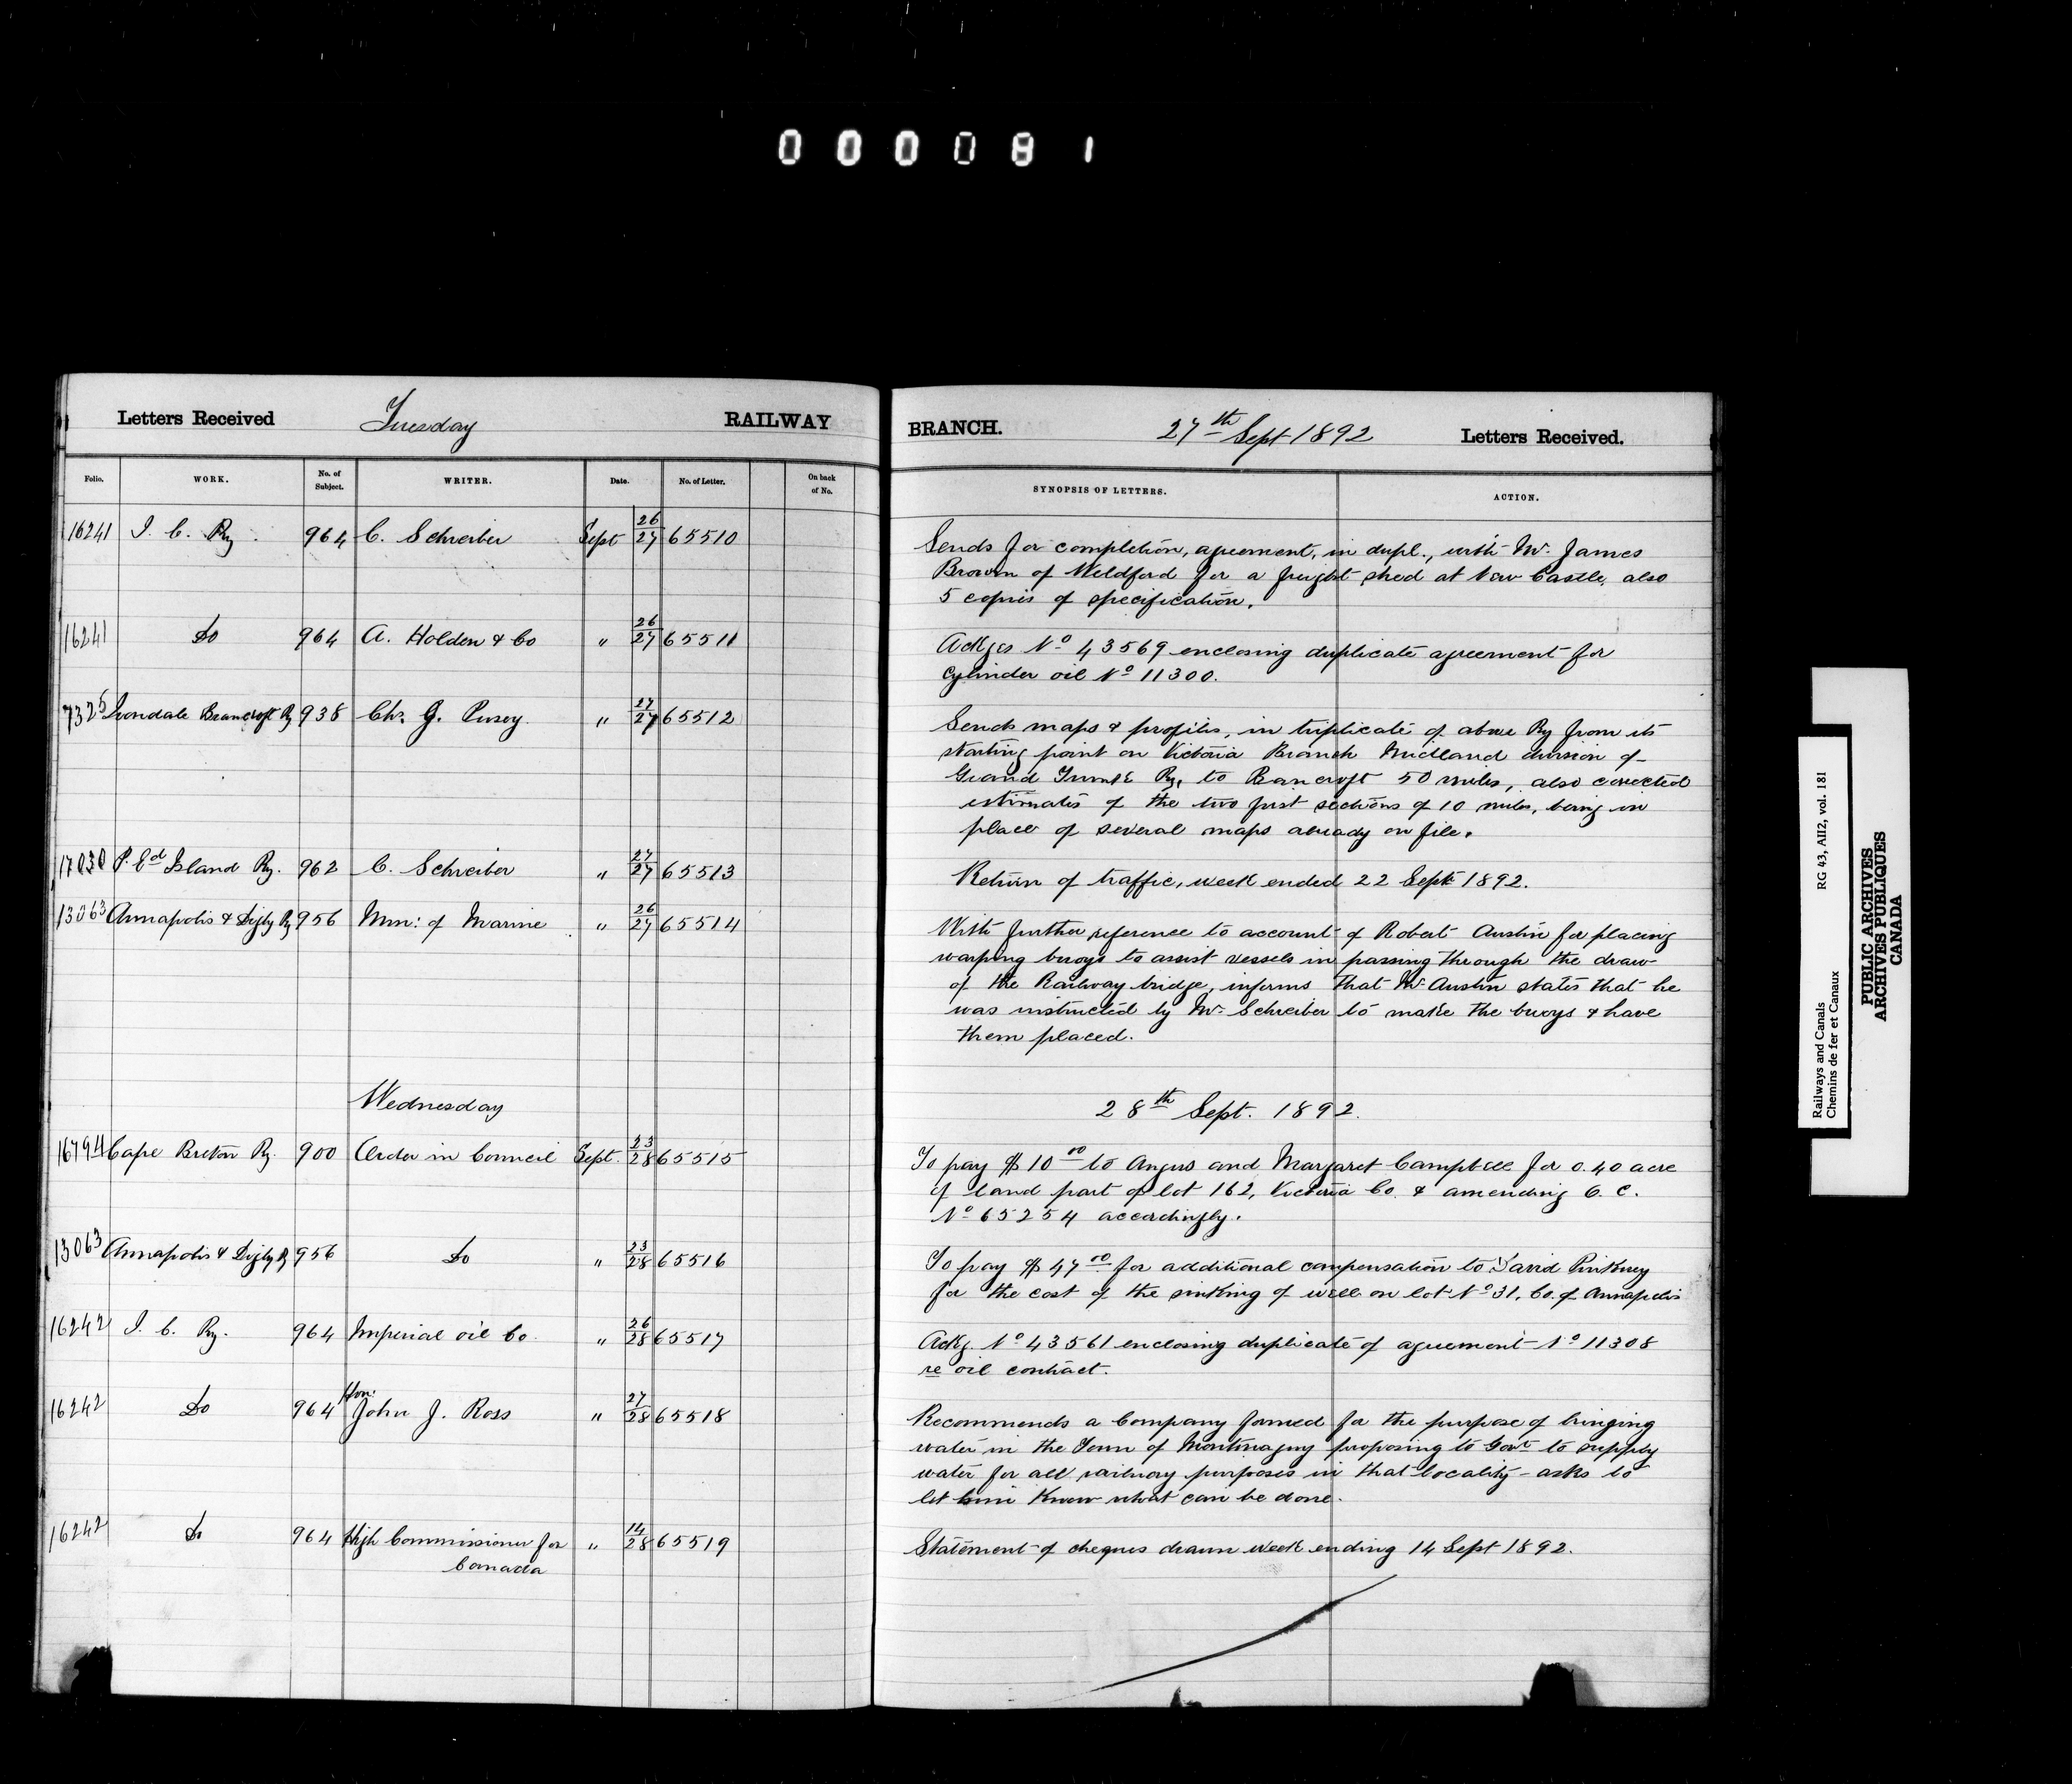 000081
Letters Received Tuesday RAILWAY
Folio. WORK. No. of Subject. WRITER. Date. No. of Letter. On back of No.
16241 I. C. Ry. 964 C. Schreiber Sept 26/27 65510
16241 Do 964 A. Holden & Co " 26/27 65511
7325 Irondale Bancroft Ry 938 Chs. J. Pusey. " 27/27 65512
17030 P. Ed Island Ry. 962 C. Schreiber " 27/27 65513
13063 Annapolis & Digby Ry 956 Min: of Marine " 26/27 65514
Wednesday
16794 Cape Breton Ry. 900 Order in Council Sept. 23/28 65515
13063 Annapolis & Digby R 956 Do " 23/28 65516
16242 I. C. Ry. 964 Imperial Oil Co. " 26/28 65517
16242 Do 964 Hon. John J. Ross " 27/28 65518
16242 Do 964 High Commissioner for " 14/28 65519
Canada
BRANCH. 27th Sept 1892 Letters Received.
SYNOPSIS OF LETTERS. ACTION.
Sends for completion, agreement, in dupl., with Mr. James
Brown of Weldford for a freight shed at New Castle, also
5 copies of specification.
Ackges No 43569 enclosing duplicate agreement for
cylinder oil No 11300.
Sends maps & profiles, in triplicate of above Ry from its
starting point on Victoria Branch Midland division of
Grand Trunk Ry. to Bancroft 50 miles, also corrected
estimates of the two first sections of 10 miles, being in
place of several maps already on file.
Return of traffic, week ended 22 Sept 1892.
With further reference to account of Robert Austin for placing
warping buoys to assist vessels in passing through the draw
of the Railway bridge, informs that Mr Austin states that he
was instructed by Mr. Schreiber to make the buoys & have
them placed.
28th Sept. 1892.
To pay $10 00 to Angus and Margaret Campbell for 0.40 acre
of land part of lot 162, Victoria Co. & amending O. C.
No 65254 accordingly.
To pay $47 00 for additional compensation to David Pinkney
for the cost of the sinking of well on lot No 31. Co. of Annapolis
Ackg. No 43561 enclosing duplicate of agreement No 11308
re oil contract.
Recommends a Company formed for the purpose of bringing
water in the Town of Montmagny proposing to Govt to supply
water for all railway purposes in that locality – asks to
let him know what can be done.
Statement of cheques drawn week ending 14 Sept 1892.
Railways and Canals RG 43, AII2, vol. 181
Chemins de fer et Canaux
PUBLIC ARCHIVES
ARCHIVES PUBLIQUES
CANADA